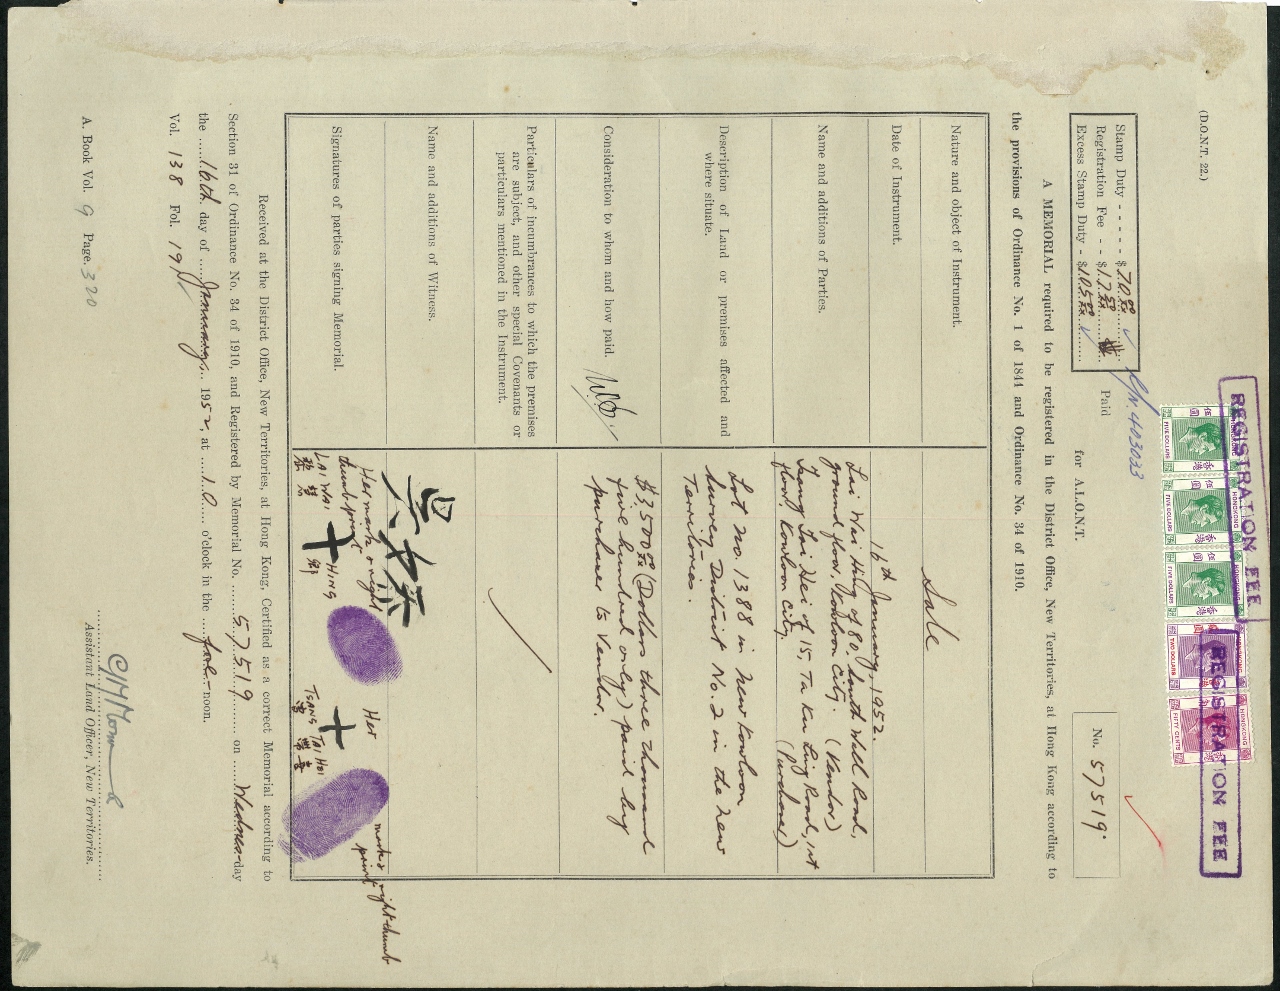 (D.O.N.T. 22.)
REGISTRATION FEE
REGISTRATION FEE
Stamp Duty - - - - - $ 70.00
Registration Fee - - $ 17.50
Excess Stamp Duty - $ 105.00
Paid
for A.L.O.N.T.
No. 57519
HONGKONG
FIVE DOLLARS
伍圓
香港
HONGKONG
FIVE DOLLARS
伍圓
香港
HONGKONG
FIVE DOLLARS
伍圓
香港
HONGKONG
TWO DOLLARS
HONGKONG
FIFTY CENTS
A MEMORIAL required to be registered in the District Office, New Territories, at Hong Kong according to
the provisions of Ordinance No. 1 of 1844 and Ordinance No. 34 of 1910.
Nature and object of Instrument.
Sale
Date of Instrument.
16th January, 1952.
Name and additions of Parties.
Lai Wai Hing of 80 South Wall Road,
ground floor, Kowloon City. (Vendor)
Tsang Tai Hei of 15 Ta Ku Ling Road, 1st
floor, Kowloon City. (Purchaser)
Description of Land or premises affected and
where situate.
Lot No. 1388 in New Kowloon
Survey District No. 2 in the New
Territories.
Consideration to whom and how paid.
$3,500.00 (Dollars three thousand
five hundred only) paid by
purchaser to Vendor.
Particulars of incumbrances to which the premises
are subject, and other special Covenants or
particulars mentioned in the Instrument.
Name and additions of Witness.
Signatures of parties signing Memorial.
Her mark & right
thumb print
LAI WAI HING
Her
mark & right thumb
print
TSANG TAI HEI
Received at the District Office, New Territories, at Hong Kong, Certified as a correct Memorial according to
Section 31 of Ordinance No. 34 of 1910, and Registered by Memorial No. 57519 on Wednesday
the 16th day of January 1952 at 10 o'clock in the fore noon.
Vol. 138 Fol. 19
Assistant Land Officer, New Territories.
A. Book Vol. 9 Page. 320